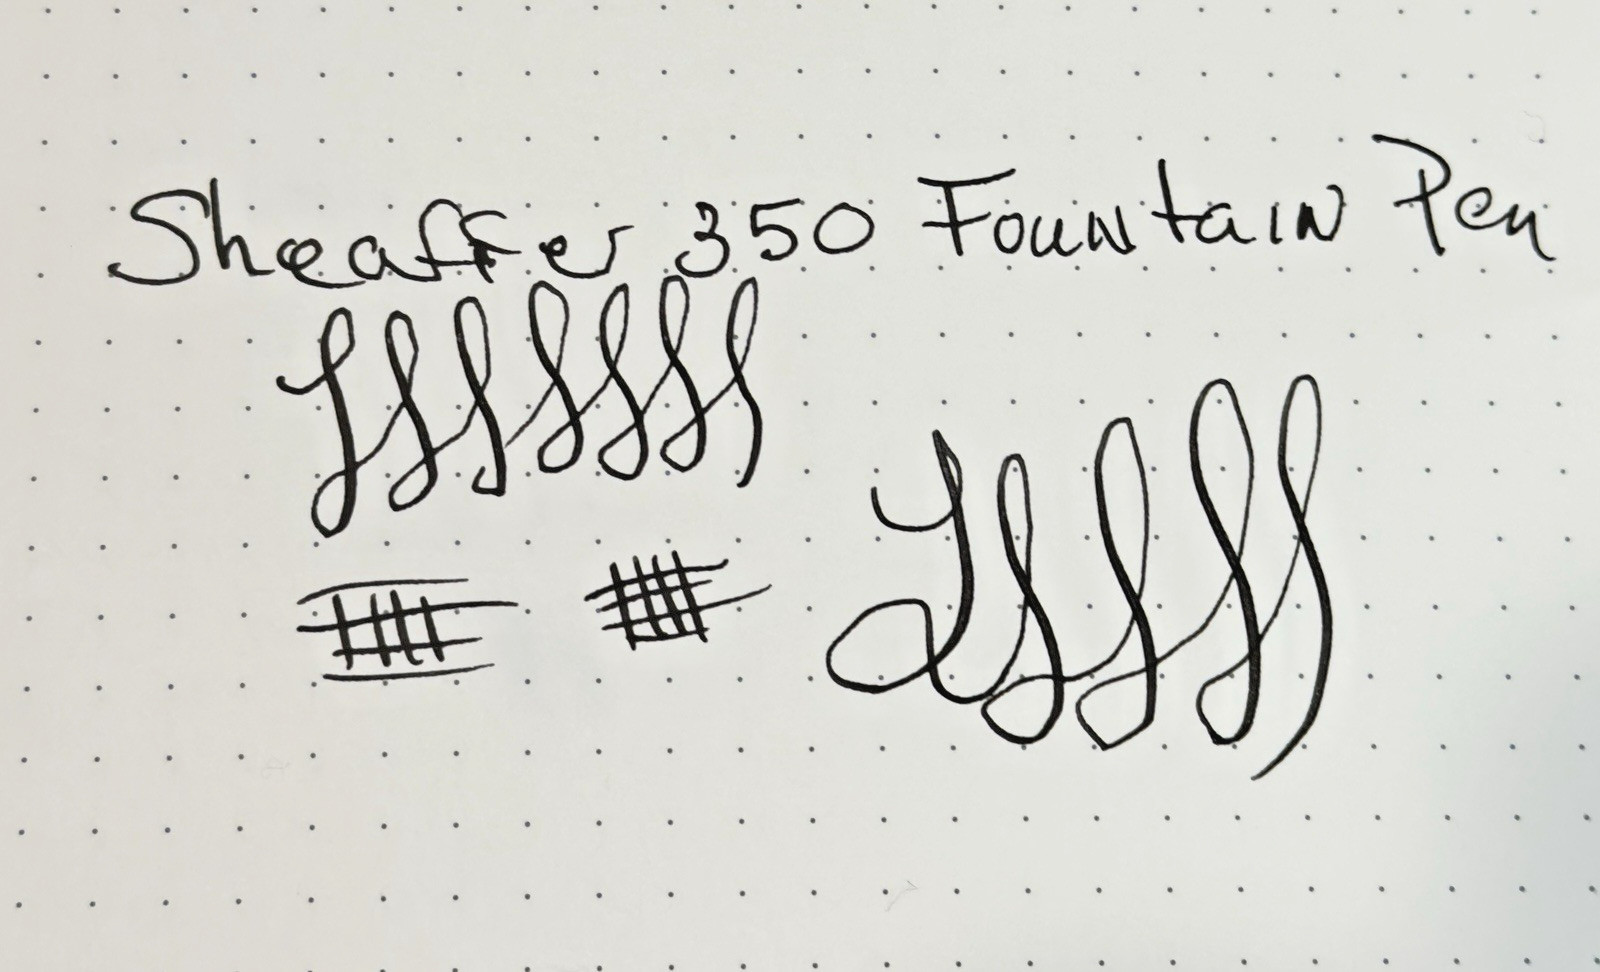 Sheaffer 350 Fountain Pen